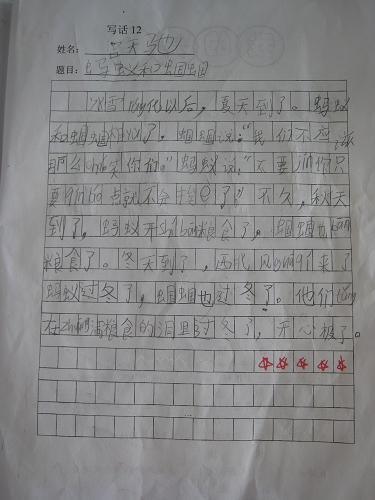 写话12
姓名：吕天驰
题目：蚂蚁和蝈蝈
冰雪rong化以后，夏天到了。蚂蚁
和蝈蝈 了。蝈蝈说：“我们不应该
那么 笑你们。”蚂蚁说：“不要 你只
要 就不会 了”不久，秋天
到了，蚂蚁开始ban粮食了，蝈蝈也ban
粮食了。冬天到了，西北风 来了
蚂蚁过冬了，蝈蝈也过冬了。他们tang
在 满粮食的洞里过冬了，开心极了。